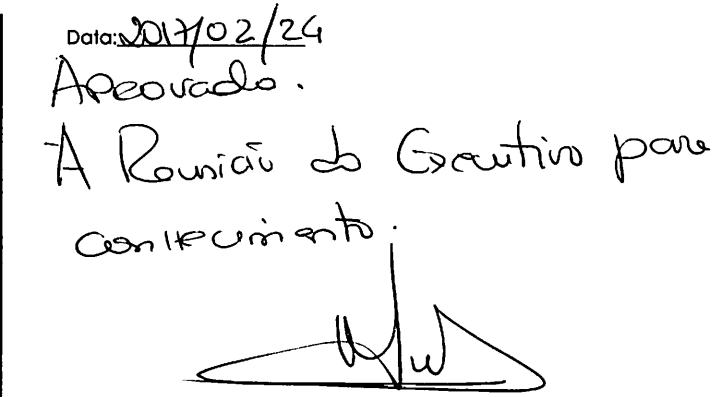 Data: 2017/02/24
Aprovado.
À Reunião do Executivo para
conhecimento.